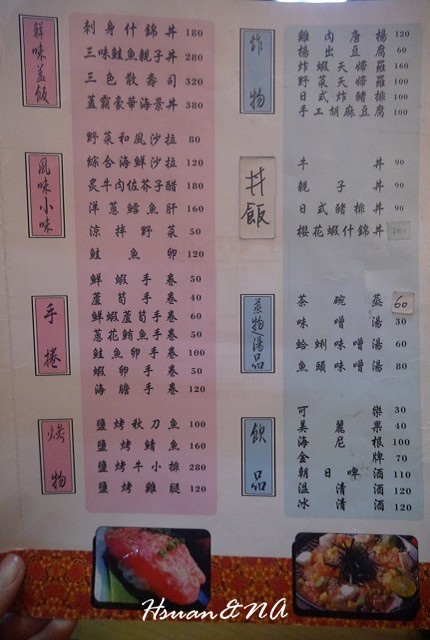 鮮味蓋飯
刺身什錦丼 180
三味鮭魚親子丼 280
三色散壽司 320
蓋霸豪華海景丼 380
風味小味
野菜和風沙拉 80
綜合海鮮沙拉 120
炙牛肉佐芥子醋 180
洋蔥鱈魚肝 160
涼拌野菜 50
鮭魚卵 120
手捲
鮮蝦手卷 50
蘆筍手卷 40
鮮蝦蘆筍手卷 60
蔥花鮪魚手卷 50
鮭魚卵手卷 100
蝦卵手卷 50
海膽手卷 120
烤物
鹽烤秋刀魚 100
鹽烤鯖魚 160
鹽烤牛小排 280
鹽烤雞腿 120
炸物
雞肉唐揚 120
揚出豆腐 60
炸蝦天婦羅 160
野菜天婦羅 100
日式炸豬排 100
手工胡麻豆腐 100
丼飯
牛丼 90
親子丼 90
日式豬排丼 90
櫻花蝦什錦丼
蒸物/湯品
茶碗蒸 60
味噌湯 30
蛤蜊味噌湯 60
魚頭味噌湯 80
飲品
可樂 30
美麗果 40
海尼根 100
金牌 70
朝日啤酒 110
溫清酒 120
冰清酒 120
Hsuan&NA